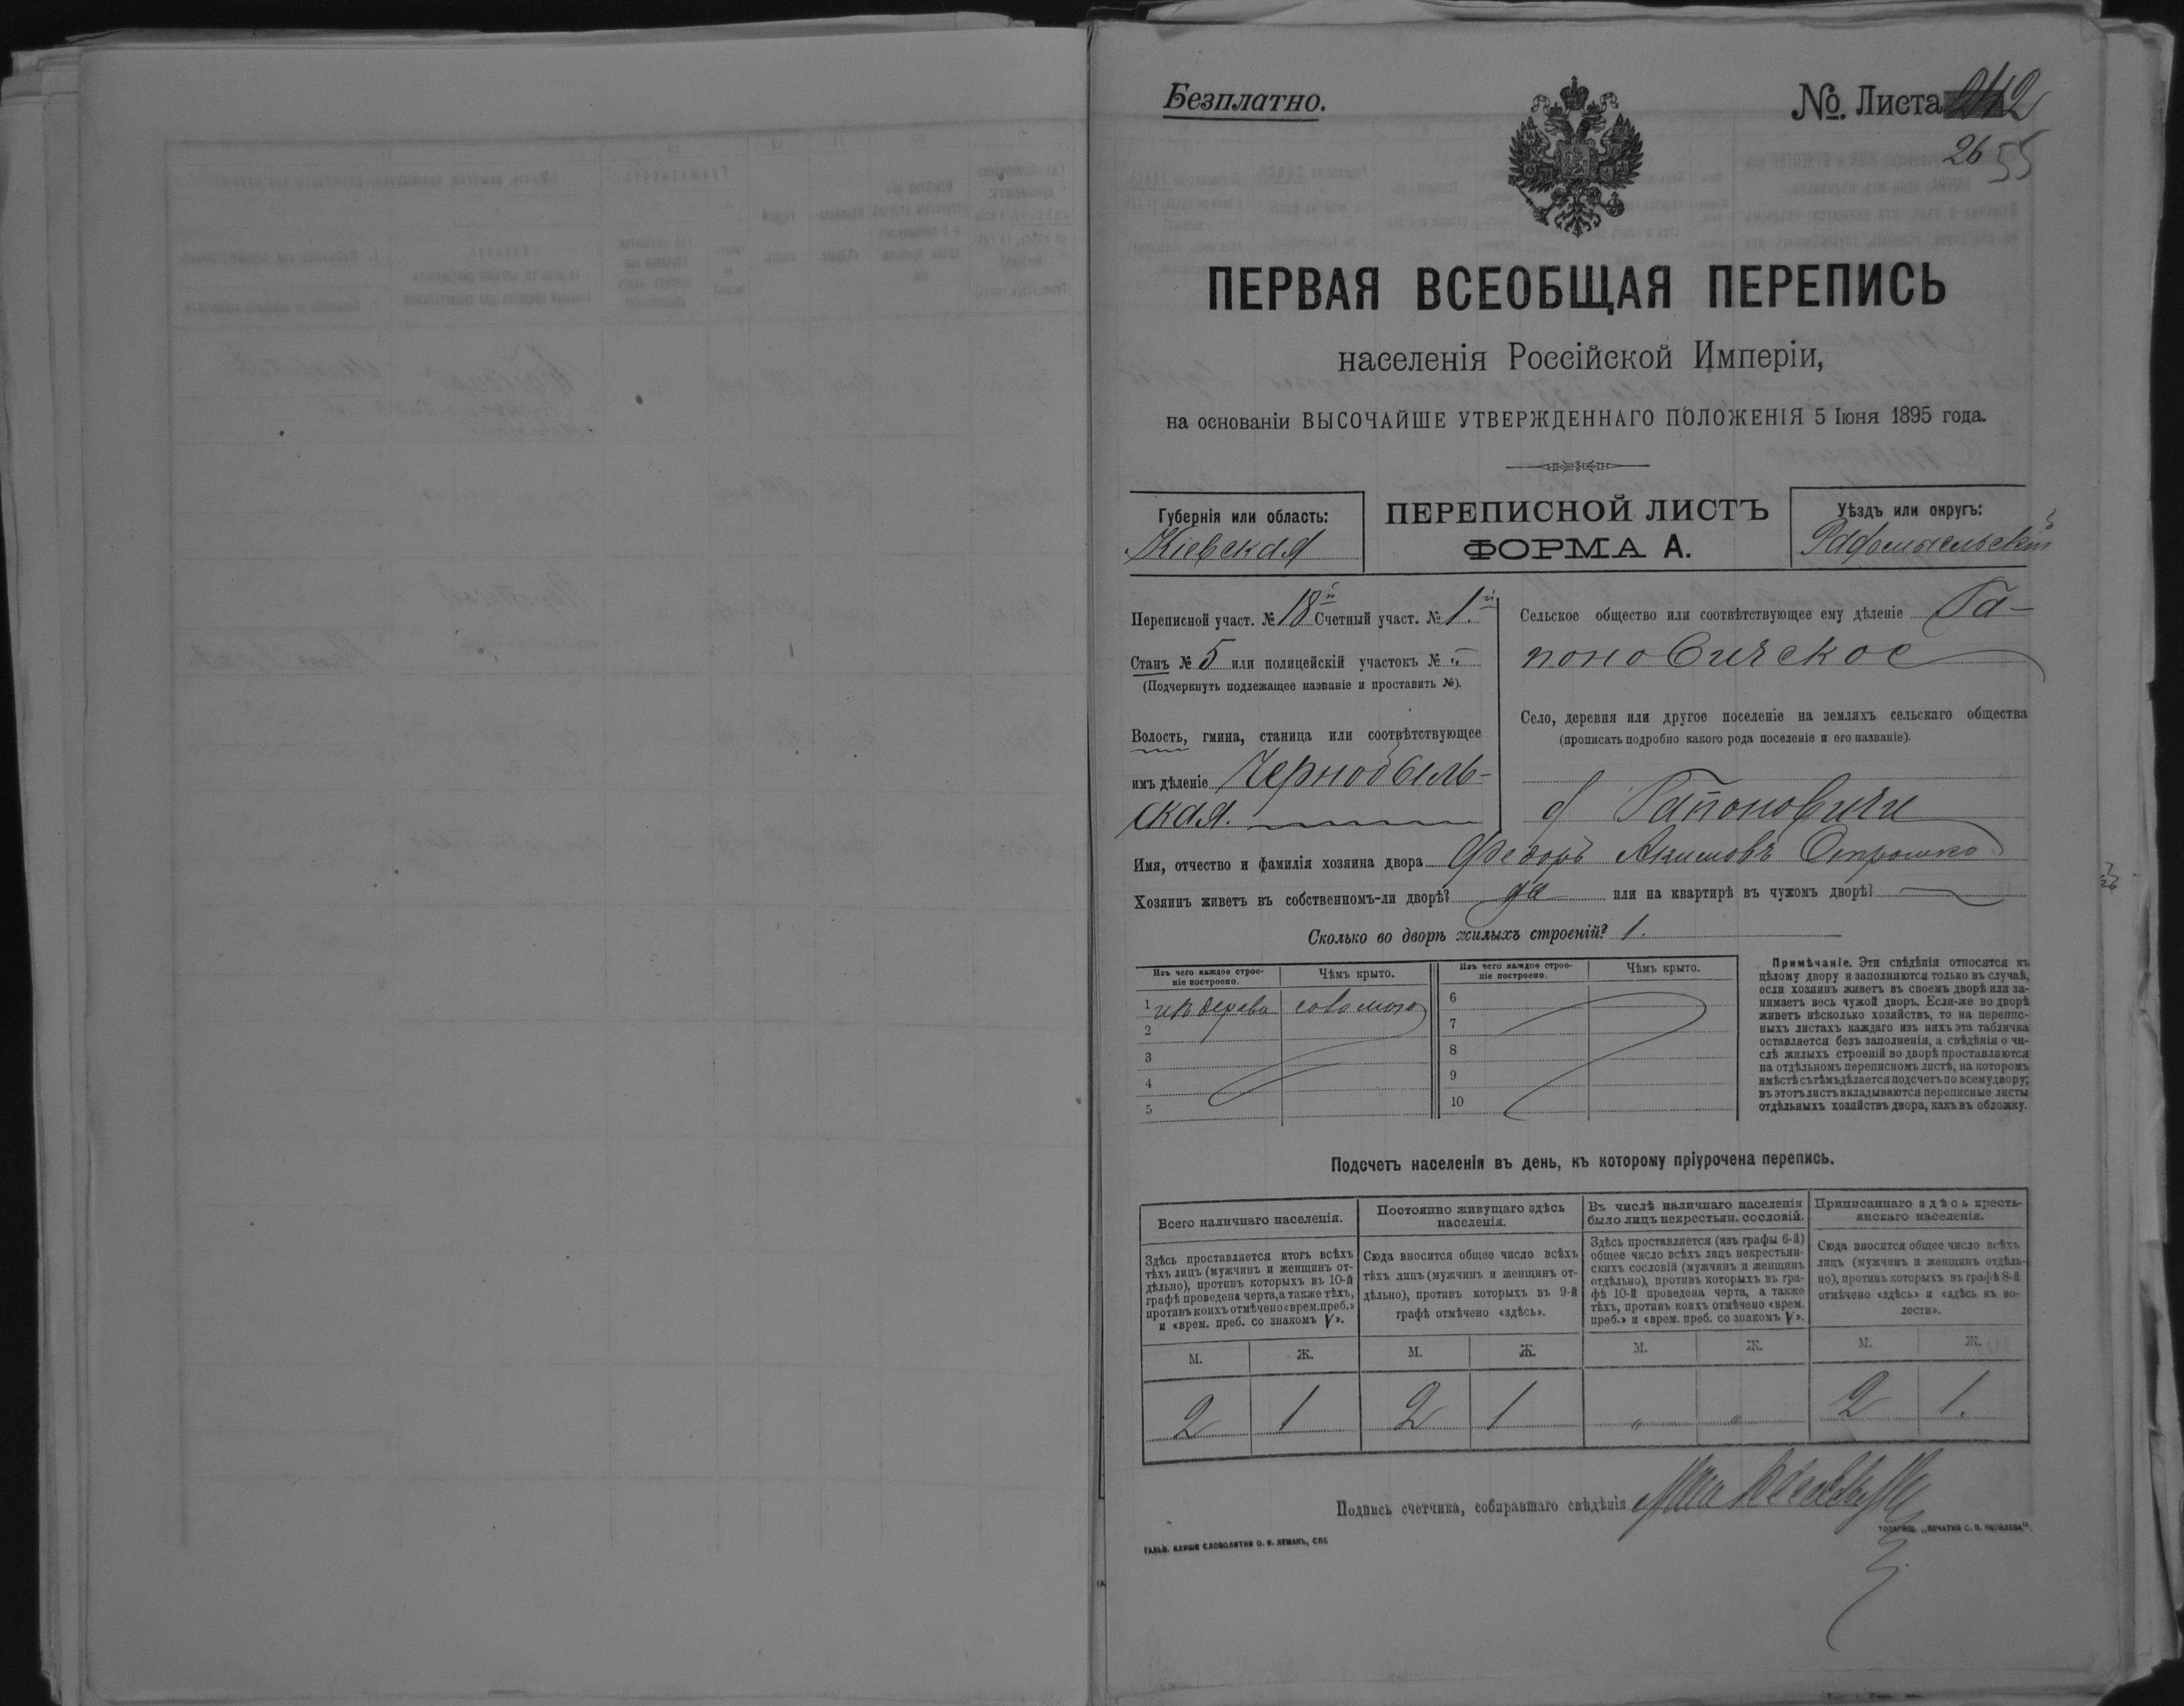 Безплатно.
№ Листа 2
26 55
ПЕРВАЯ ВСЕОБЩАЯ ПЕРЕПИСЬ
населенія Россійской Имперіи,
на основаніи ВЫСОЧАЙШЕ УТВЕРЖДЕННАГО ПОЛОЖЕНІЯ 5 Іюня 1895 года.
Губернія или область:
Кіевская
ПЕРЕПИСНОЙ ЛИСТЪ
ФОРМА А.
Уѣздъ или округъ:
Радомысльскій
Переписной участ. № 18й Счетный участ. № 1.й
Станъ № 5 или полицейскій участокъ № "
(Подчеркнуть подлежащее названіе и проставить №).
Волость, гмина, станица или соотвѣтствующее
имъ дѣленіе Чернобыль-
ская.
Сельское общество или соотвѣтствующее ему дѣленіе Га-
поновичское
Село, деревня или другое поселеніе на земляхъ сельскаго общества
(прописать подробно какого рода поселеніе и его названіе).
Гапоновичи
Имя, отчество и фамилія хозяина двора Федоръ Акимовъ Отрошко
Хозяинъ живетъ въ собственномъ-ли дворѣ? да или на квартирѣ въ чужомъ дворѣ?
Сколько во дворѣ жилыхъ строеній? 1.
Изъ чего каждое строе-
ніе построено.
Чѣмъ крыто.
Изъ чего каждое строе-
ніе построено.
Чѣмъ крыто.
1 изъ дерева соломою
2
3
4
5
6
7
8
9
10
Примѣчаніе. Эти свѣдѣнія относятся къ
цѣлому двору и заполняются только въ случаѣ,
если хозяинъ живетъ въ своемъ дворѣ или за-
нимаетъ весь чужой дворъ. Если-же во дворѣ
живетъ нѣсколько хозяйствъ, то на перепис-
ныхъ листахъ каждаго изъ нихъ эта табличка
оставляется безъ заполненія, а свѣдѣнія о чи-
слѣ жилыхъ строеній во дворѣ проставляются
на отдѣльномъ переписномъ листѣ, на которомъ
вмѣстѣ съ тѣмъ дѣлается подсчетъ по всему двору;
въ этотъ листъ вкладываются переписные листы
отдѣльныхъ хозяйствъ двора, какъ въ обложку.
Подсчетъ населенія въ день, къ которому пріурочена перепись.
Всего наличнаго населенія.
Здѣсь проставляется итогъ всѣхъ
тѣхъ лицъ (мужчинъ и женщинъ от-
дѣльно), противъ которыхъ въ 10-й
графѣ проведена черта, а также тѣхъ,
противъ коихъ отмѣчено «врем. преб.»
и «врем. преб. со знакомъ V».
Постоянно живущаго здѣсь
населенія.
Сюда вносится общее число всѣхъ
тѣхъ лицъ (мужчинъ и женщинъ от-
дѣльно), противъ которыхъ въ 9-й
графѣ отмѣчено «здѣсь».
Въ числѣ наличнаго населенія
было лицъ некрестьян. сословій.
Здѣсь проставляется (изъ графы 6-й)
общее число всѣхъ лицъ некрестьян-
скихъ сословій (мужчинъ и женщинъ
отдѣльно), противъ которыхъ въ гра-
фѣ 10-й проведена черта, а также
тѣхъ, противъ коихъ отмѣчено «врем.
преб.» и «врем. преб. со знакомъ V».
Приписаннаго здѣсь кресть-
янскаго населенія.
Сюда вносится общее число всѣхъ
лицъ (мужчинъ и женщинъ отдѣль-
но), противъ которыхъ въ графѣ 8-й
отмѣчено «здѣсь» и «здѣсь къ во-
лости».
М. Ж. М. Ж. М. Ж. М. Ж.
2 1 2 1 " " 2 1.
Подпись счетчика, собиравшаго свѣдѣнія
ГАЛЬВ. КЛИШЕ СЛОВОЛИТНИ О. И. ЛЕМАНЪ, СПБ
ТОВАРИЩ. „ПЕЧАТНЯ С. П. ЯКОВЛЕВА“.